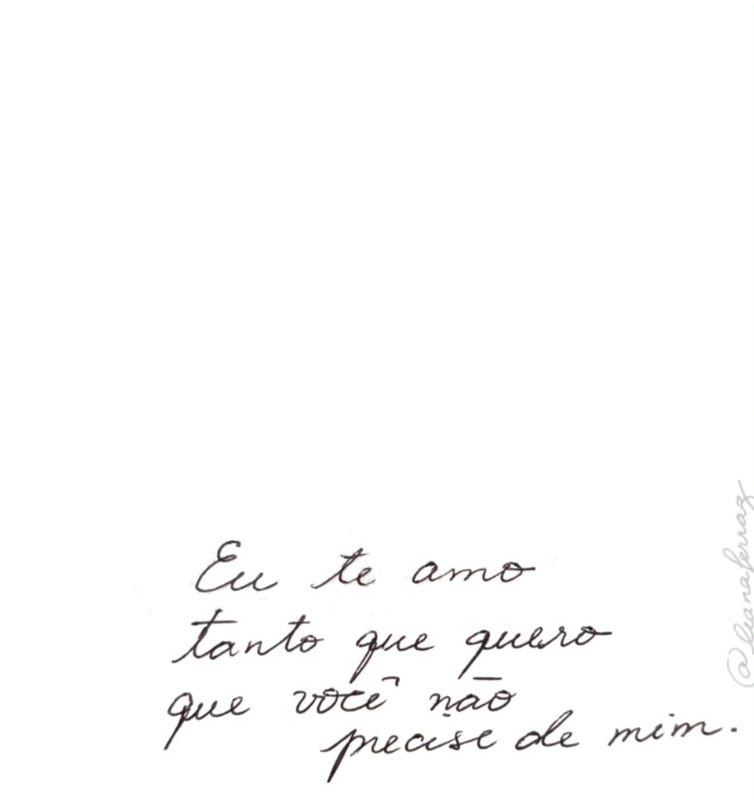 Eu te amo
tanto que quero
que você não
precise de mim.
@lianaferraz